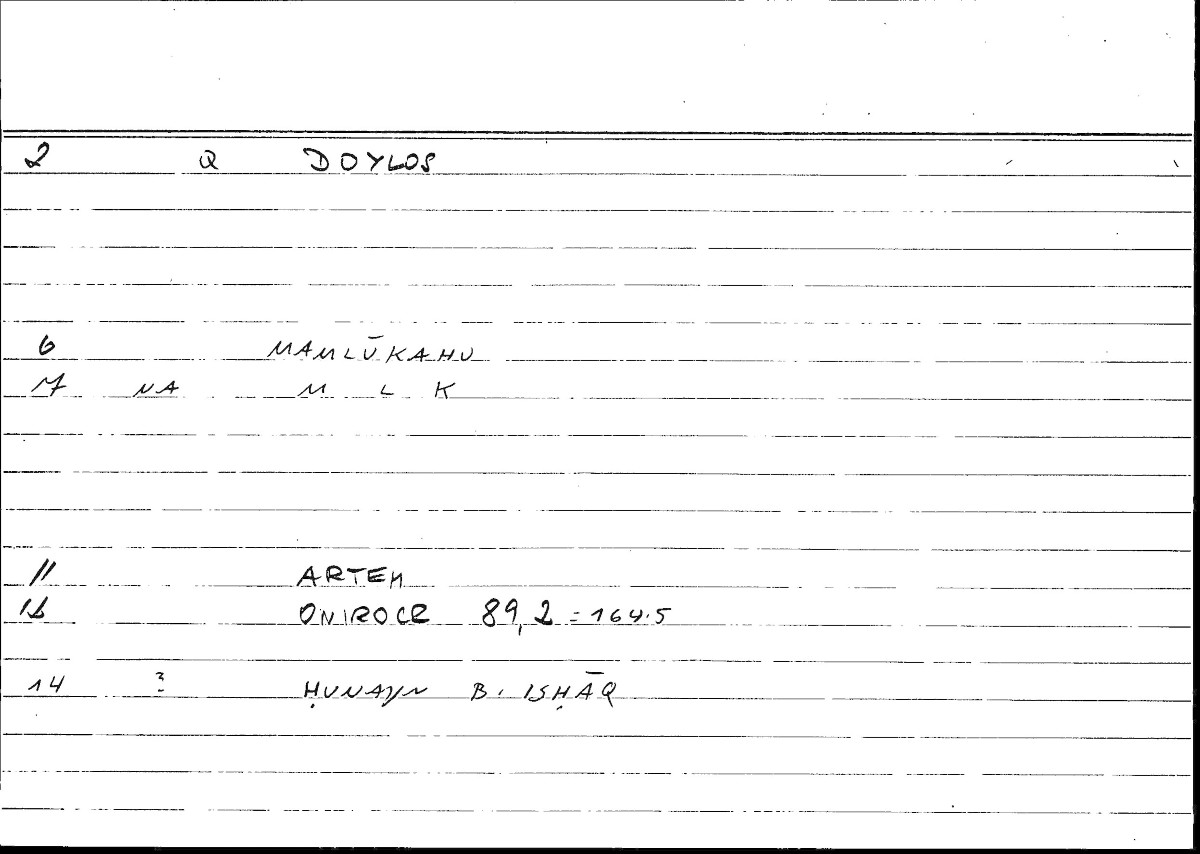 2 Q DOYLOS
6 MAMLŪKAHU
7 NA M L K
11 ARTEM
12 ONIROCR 89,2 = 164.5
14 ? ḤUNAYN B. ISḤĀQ